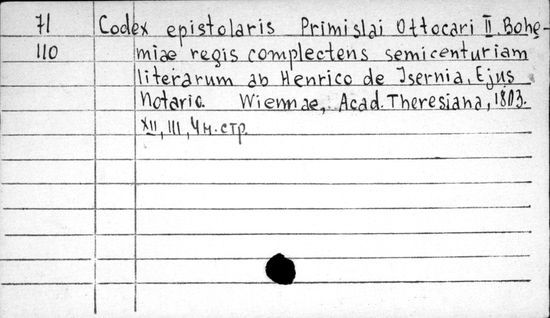 71 Codex epistolaris Primislai Ottocari II. Bohe-
110 miae regis complectens semicenturiam
literarum ab Henrico de Isernia, Ejus
Notario. Wiennae, Acad. Theresiana, 1803.
XII, III, 4 н. стр.